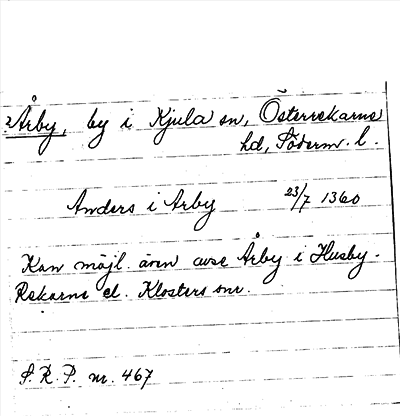 ? Årby, by i Kjula sn, Österrekarne
hd, Söderm. l.
Anders i Arby 23/7 1360
Kan möjl. även avse Årby i Husby-
Rekarne el. Klosters snr.
S. R. P. nr. 467